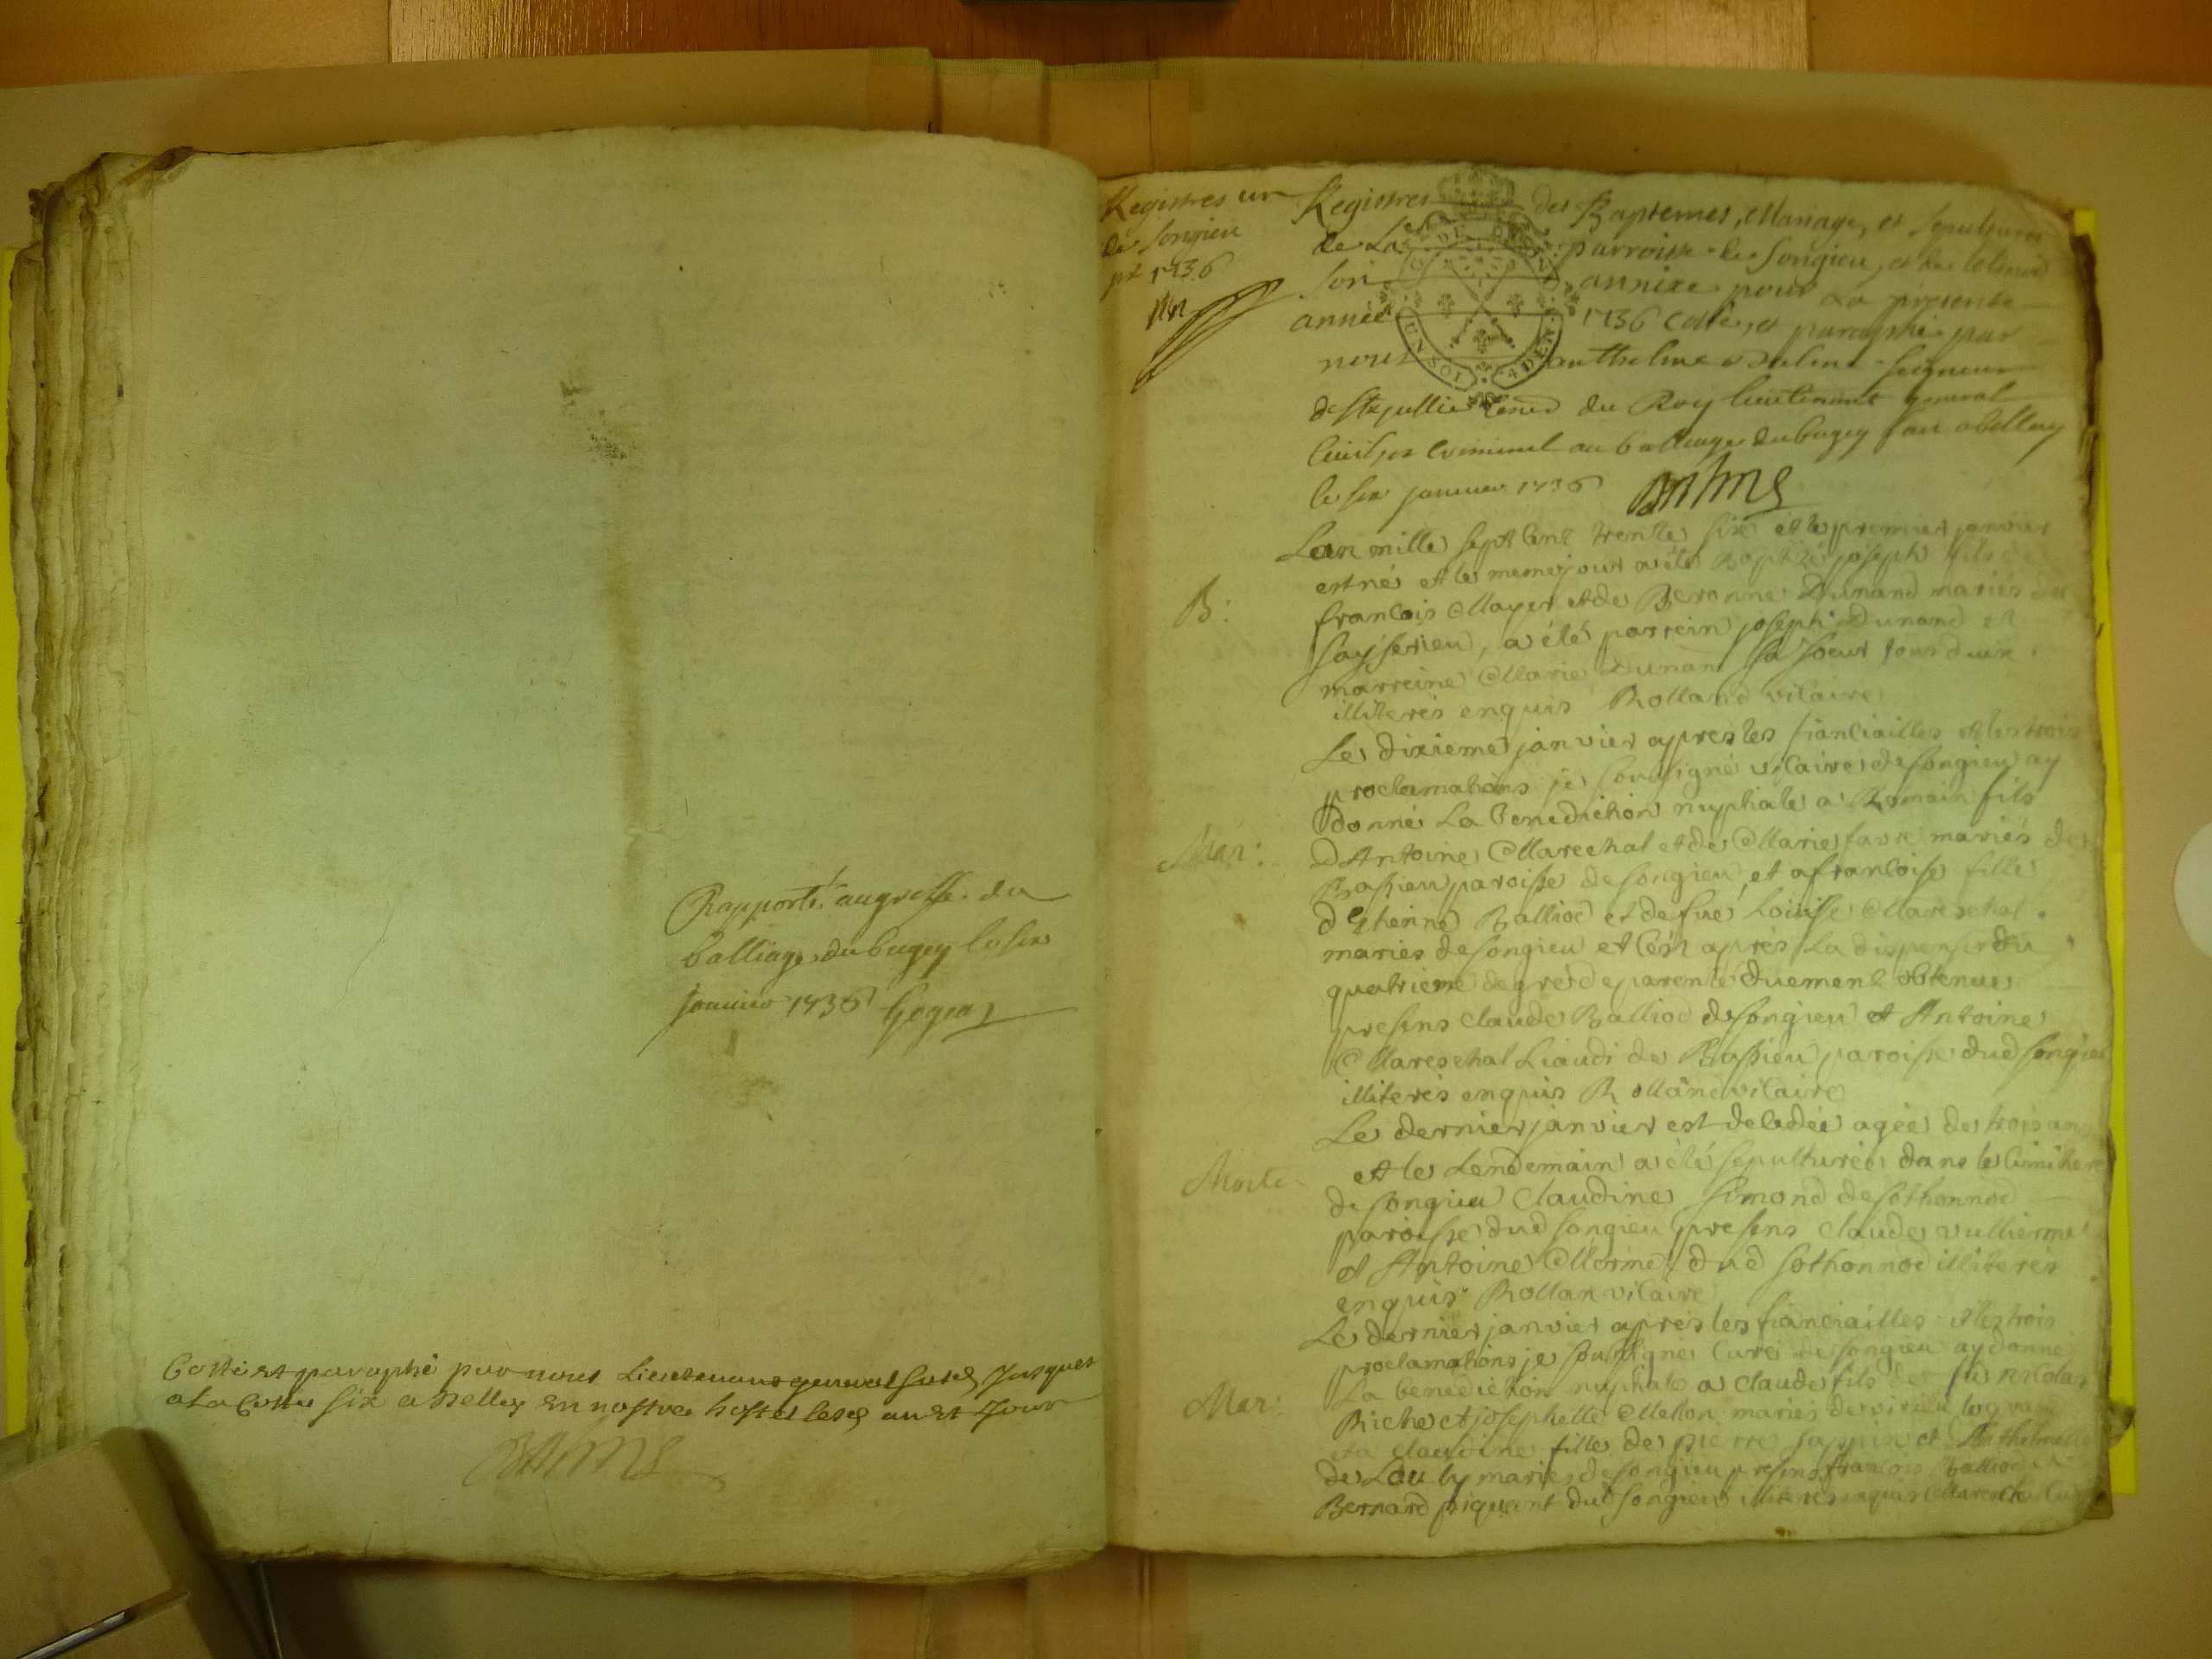 Rapporté au greffe du
balliage du bugey le six
janvier 1736
Cotté et paraphé par nous Lieutenant general susd. jusques
a la cotte six a Belley en nostre hostel lesd. an et jour
Registres
de Songieu
pr 1736
Registres des Baptemes, Mariage, et Sepultures
de La parroisse de Songieu, et de
son annixe pour La presente
année 1736 cotté, et paraphé par
nous Anthelme Seigneur
du Roy lieutenant general
Civil, et Criminel au balliage du bugey
le six janvier 1736
GEN
DE
UN SOL
4 DEN
B:
Lan mille sept cent trente six et le premier janvier
est né et le meme jour a été Baptizé joseph fils de
francois Mayer et de Peronne Dunand mariés de
, a été parrein joseph Dunand et
marreine Marie Dunand sa soeur tous deux
illiterés enquis Rolland vicaire
Mar:
Le dixieme janvier apres les fianciailles et les trois
proclamations je soussigné vicaire de Songieu ay
donné La Benediction nuptiale a Romain fils
d'Antoine Marechal et de Marie favre mariés de
Bassieu paroisse de songieu, et a francoise fille
d'Etienne Balliod et de fue Louise Mareschal
mariés de songieu et c'est aprés La dispense du
quatrieme degré de parenté duement obtenue
presens claude Balliod de songieu et Antoine
Mareschal Liaudi de Bassieu paroisse dud songieu
illiterés enquis Rolland vicaire
Morte
Le dernier janvier est decedée agée de trois ans
et le Lendemain a été sepulturée dans le cimitiere
de songieu Claudine Simond de sothonnod
paroisse dud songieu presens claude vulliermet
et Antoine Morme dud sothonnod illiterés
enquis Rollan vicaire
Mar:
Le dernier janvier aprés les fianciailles et les trois
proclamations je soussigné Curé de songieu ay donné
La benediction nuptiale a claude fils de fû nicolas
Riche et josephette Mellon mariés de virieu le grand
et a claudine fille de pierre et Anthelmette
de mariés de songieu presens francois Balliod et
Bernard piquent dud songieu illiterés enquis Mareschal Curé